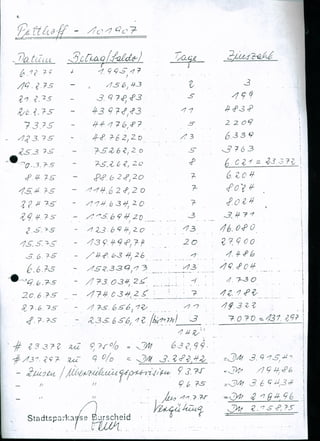 Potthoff - 101907
Datum Betrag (Saldo) Tage Zinszahl
6.12.75 + 1.995,17
19.2.75 - 156,43 2 3
21.2.75 - 3.978,83 5 199
26.2.75 - 43.978,83 11 4838
7.3.75 - 44.176,87 5 2209
12.3.75 - 48.762,20 13 6339
25.3.75 - 75.262,20 5 3763
0.3.75 - 75.262,20 8 6.021 = 23.372
8.4.75 - 88.628,20 7 6204
15.4.75 - 114.628,20 7 8024
22.4.75 - 114.634,20 7 8024
29.4.75 - 115.694,20 3 3.471
2.5.75 - 123.694,20 13 16.080
15.5.75 - 139.498,74 20 27.900
5.6.75 - 148.634,26 1 1.486
6.6.75 - 152.339,13 13 19.804
9.6.75 - 173.034,25 1 1.730
20.6.75 - 174.034,25 7 12.182
27.6.75 - 175.656,12 11 19.322
8.7.75 - 235.656,12 3 7.070 = 131.297
142
# 23.372 zu 9,75% = DM 632,99
# 131.297 zu 9% = DM 3.282,42 = DM 3.915,41
- Zinsen / Überziehungsprovision 9.3.75 = DM 194,86
" " 9.6.75 = DM
bis 11.7.75 = DM
Vergütung = DM 2.158,75
Stadtsparkasse Burscheid